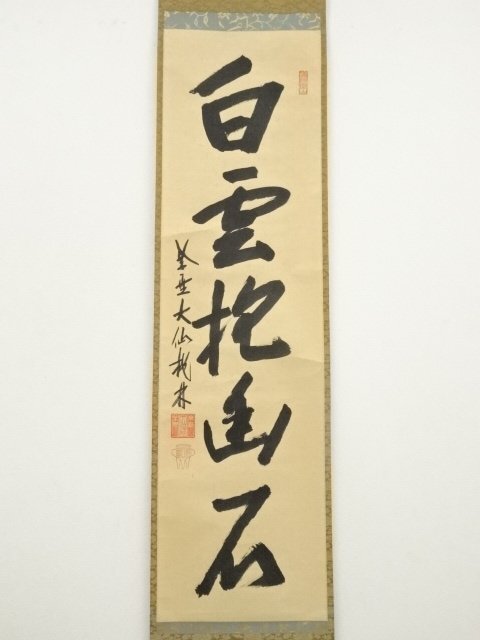 白雲抱幽石
大仙桃林